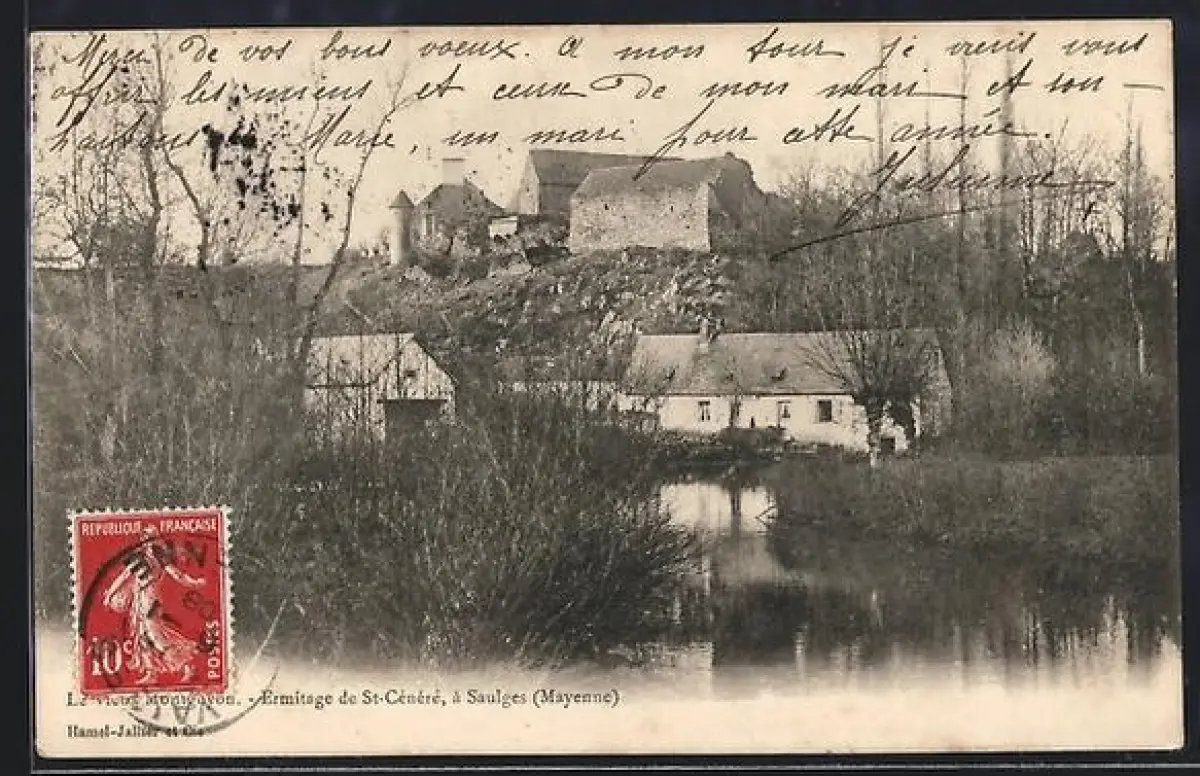 Merci de vos bons voeux. A mon tour je viens vous
offrir les miens et ceux de mon mari et sou-
haitons Marie, un mari pour cette année.
REPUBLIQUE FRANÇAISE
10c
POSTES
Le Vieux Montguyon. - Ermitage de St-Cénéré, à Saulges (Mayenne)
Hamel-Jallier et Cie